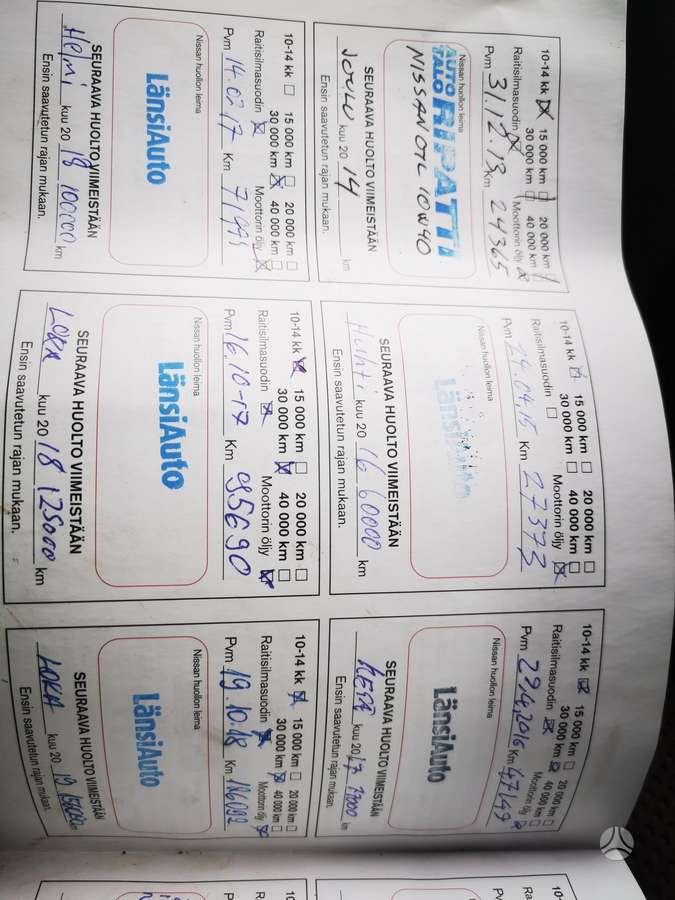 10-14 kk 15 000 km 20 000 km
Raitisilmasuodin 30 000 km 40 000 km
Moottorin öljy
Pvm 31.12.13 Km 24365
Nissan huollon leima
AUTO TALO RIPATTI
NISSAN OIL 10W40
SEURAAVA HUOLTO VIIMEISTÄÄN
JOULU kuu 20 14 km
Ensin saavutetun rajan mukaan.
10-14 kk 15 000 km 20 000 km
Raitisilmasuodin 30 000 km 40 000 km
Moottorin öljy
Pvm 24.04.15 Km 27373
Nissan huollon leima
LänsiAuto
SEURAAVA HUOLTO VIIMEISTÄÄN
Huhti kuu 20 16 60000 km
Ensin saavutetun rajan mukaan.
10-14 kk 15 000 km 20 000 km
Raitisilmasuodin 30 000 km 40 000 km
Moottorin öljy
Pvm 29.4.2016 Km 47147
Nissan huollon leima
LänsiAuto
SEURAAVA HUOLTO VIIMEISTÄÄN
kuu 20 17 km
Ensin saavutetun rajan mukaan.
10-14 kk 15 000 km 20 000 km
Raitisilmasuodin 30 000 km 40 000 km
Moottorin öljy
Pvm 14.02.17 Km
Nissan huollon leima
LänsiAuto
SEURAAVA HUOLTO VIIMEISTÄÄN
Helmi kuu 20 18 100000 km
Ensin saavutetun rajan mukaan.
10-14 kk 15 000 km 20 000 km
Raitisilmasuodin 30 000 km 40 000 km
Moottorin öljy
Pvm 16.10-17 Km 95690
Nissan huollon leima
LänsiAuto
SEURAAVA HUOLTO VIIMEISTÄÄN
LOKA kuu 20 18 125000 km
Ensin saavutetun rajan mukaan.
10-14 kk 15 000 km 20 000 km
Raitisilmasuodin 30 000 km 40 000 km
Moottorin öljy
Pvm 19.10.18 Km
Nissan huollon leima
LänsiAuto
SEURAAVA HUOLTO VIIMEISTÄÄN
LOKA kuu 20 19 150000 km
Ensin saavutetun rajan mukaan.